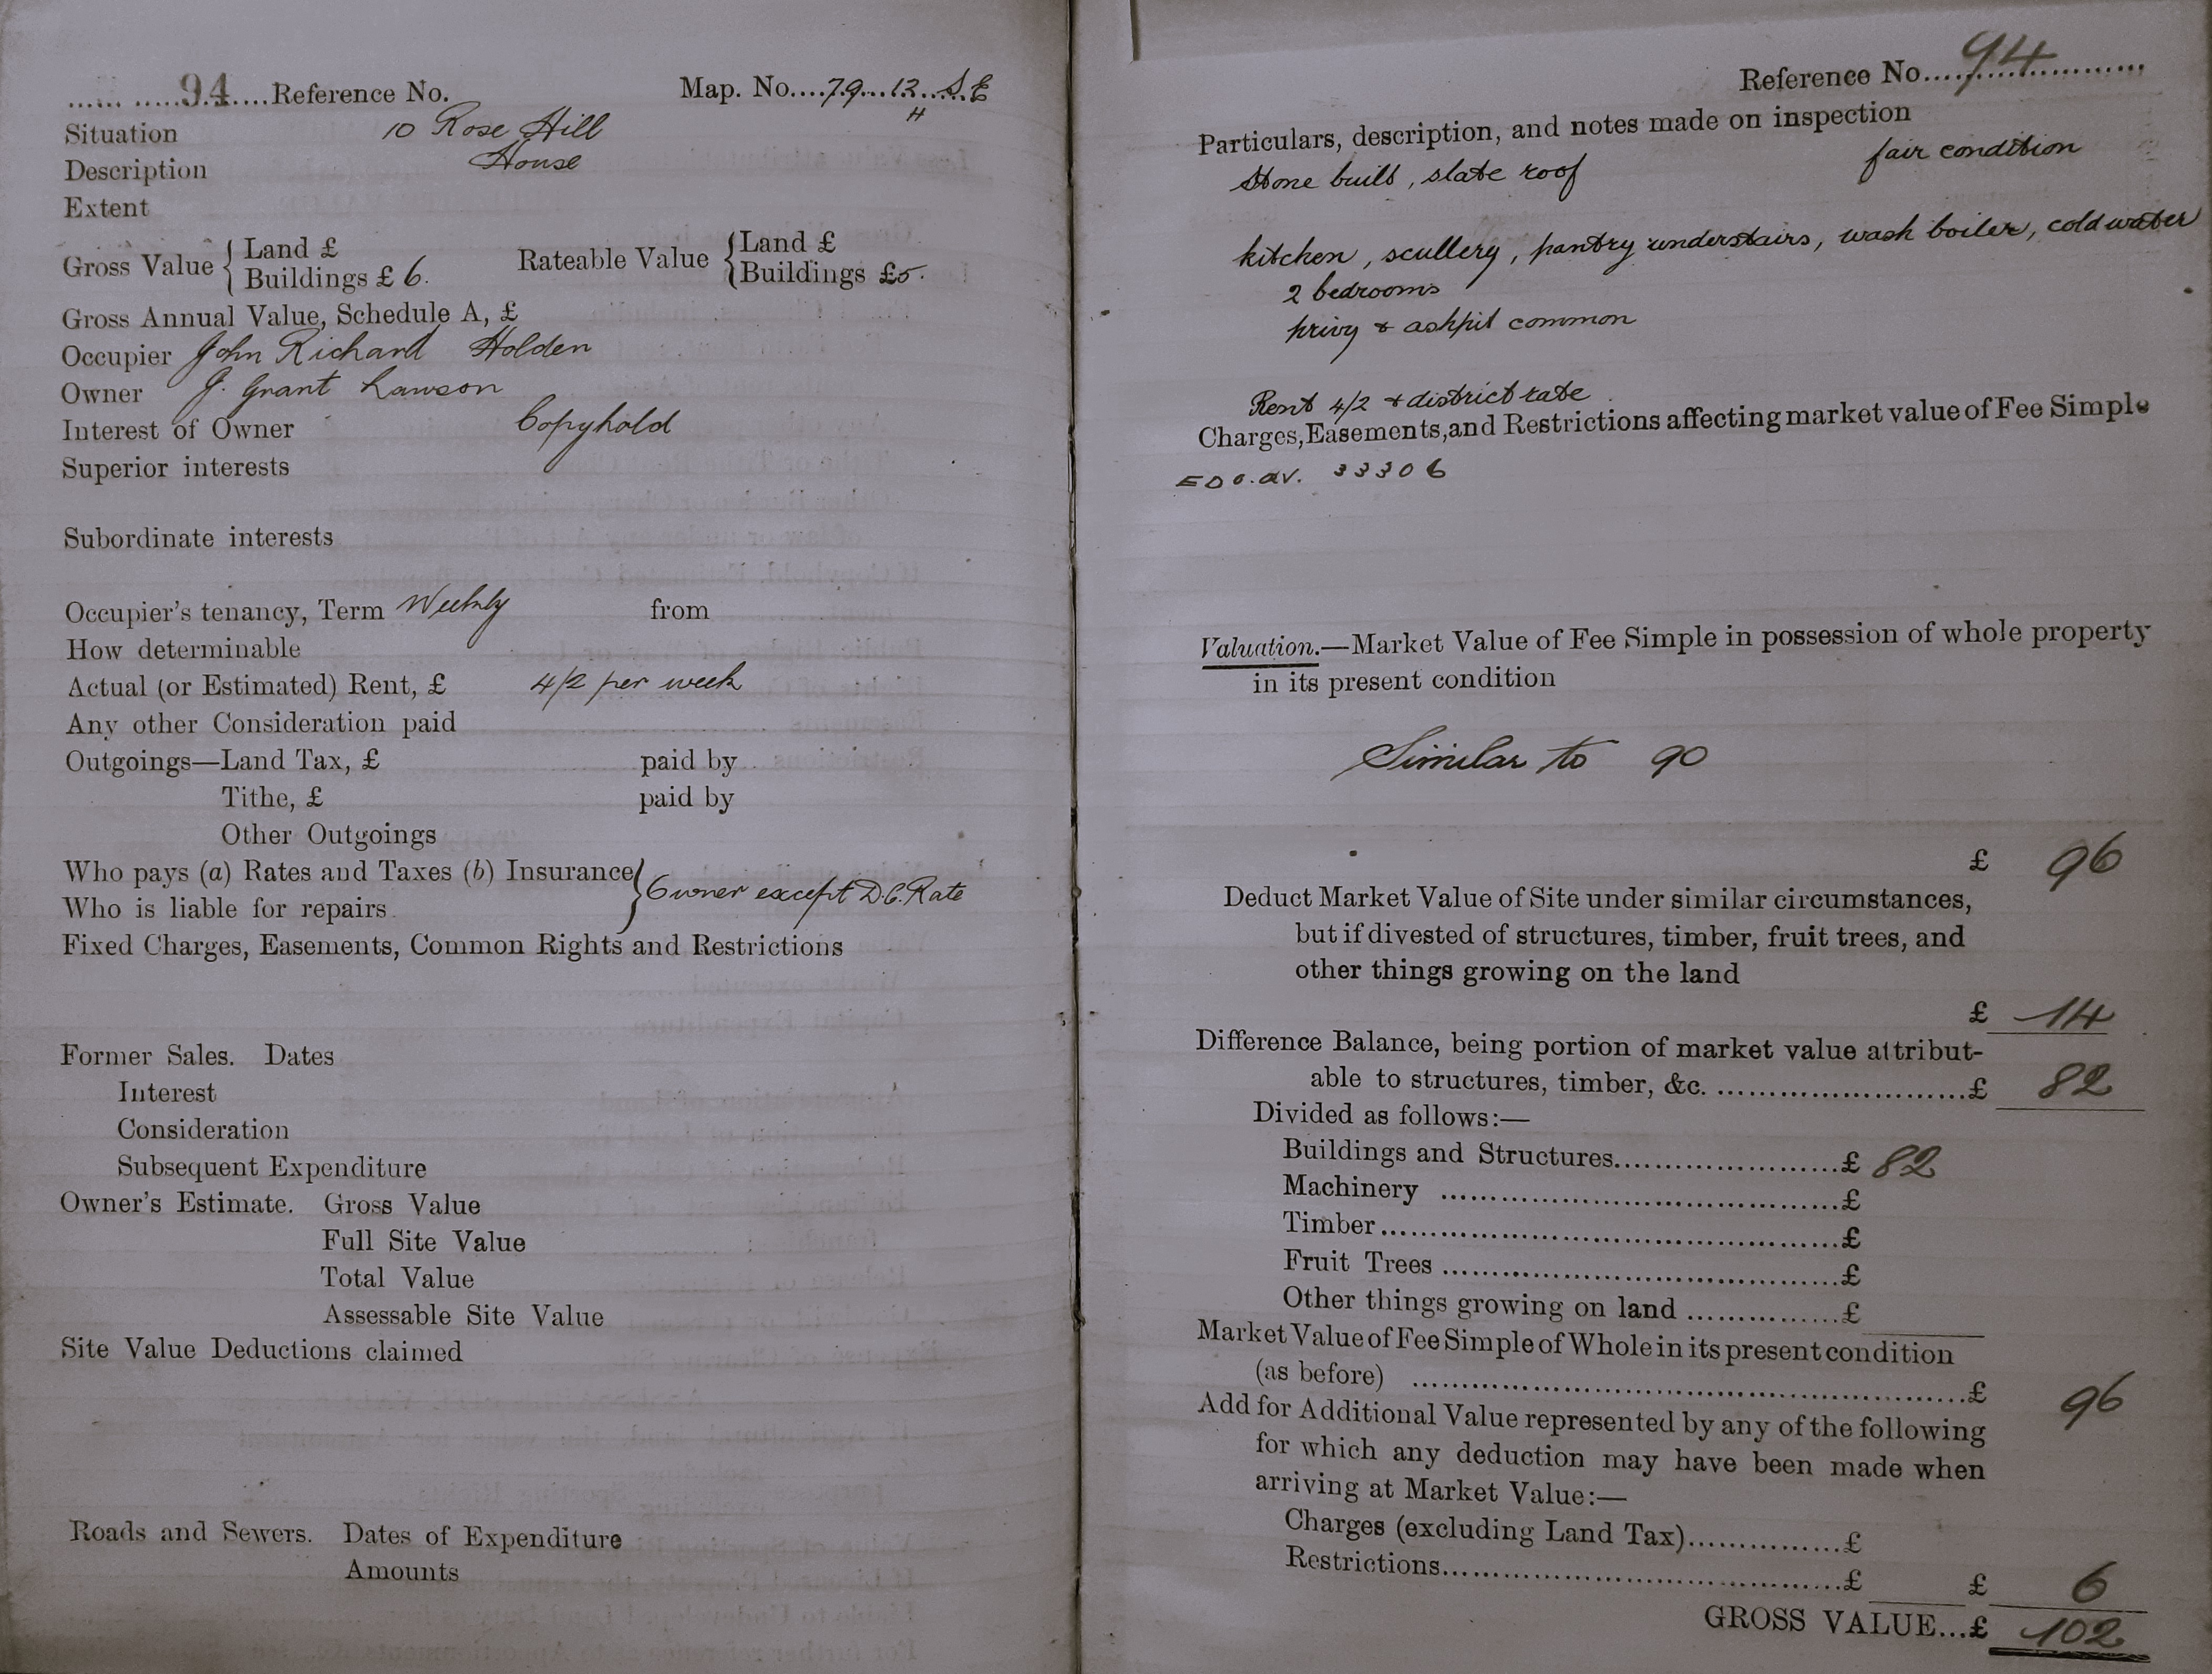 94 Reference No. Map. No. 79 12 S.E
H
Situation 10 Rose Hill
Description House
Extent
Gross Value { Land £
Buildings £ 6.
Rateable Value { Land £
Buildings £5.
Gross Annual Value, Schedule A, £
Occupier John Richard Holden
Owner J. Grant Lawson
Interest of Owner Copyhold
Superior interests
Subordinate interests
Occupier's tenancy, Term Weekly from
How determinable
Actual (or Estimated) Rent, £ 4/2 per week
Any other Consideration paid
Outgoings—Land Tax, £ paid by
Tithe, £ paid by
Other Outgoings
Who pays (a) Rates and Taxes (b) Insurance
Who is liable for repairs } Owner except D.C. Rate
Fixed Charges, Easements, Common Rights and Restrictions
Former Sales. Dates
Interest
Consideration
Subsequent Expenditure
Owner's Estimate. Gross Value
Full Site Value
Total Value
Assessable Site Value
Site Value Deductions claimed
Roads and Sewers. Dates of Expenditure
Amounts
Reference No. 94
Particulars, description, and notes made on inspection
Stone built, slate roof fair condition
kitchen, scullery, pantry understairs, wash boiler, cold water
2 bedrooms
privy & ashpit common
Rent 4/2 + district rate
Charges, Easements, and Restrictions affecting market value of Fee Simple
33306
Valuation.—Market Value of Fee Simple in possession of whole property
in its present condition
Similar to 90
£ 96
Deduct Market Value of Site under similar circumstances,
but if divested of structures, timber, fruit trees, and
other things growing on the land
£ 14
Difference Balance, being portion of market value attribut-
able to structures, timber, &c. £ 82
Divided as follows:—
Buildings and Structures £ 82
Machinery £
Timber £
Fruit Trees £
Other things growing on land £
Market Value of Fee Simple of Whole in its present condition
(as before) £ 96
Add for Additional Value represented by any of the following
for which any deduction may have been made when
arriving at Market Value:—
Charges (excluding Land Tax) £
Restrictions £ £ 6
GROSS VALUE...£ 102